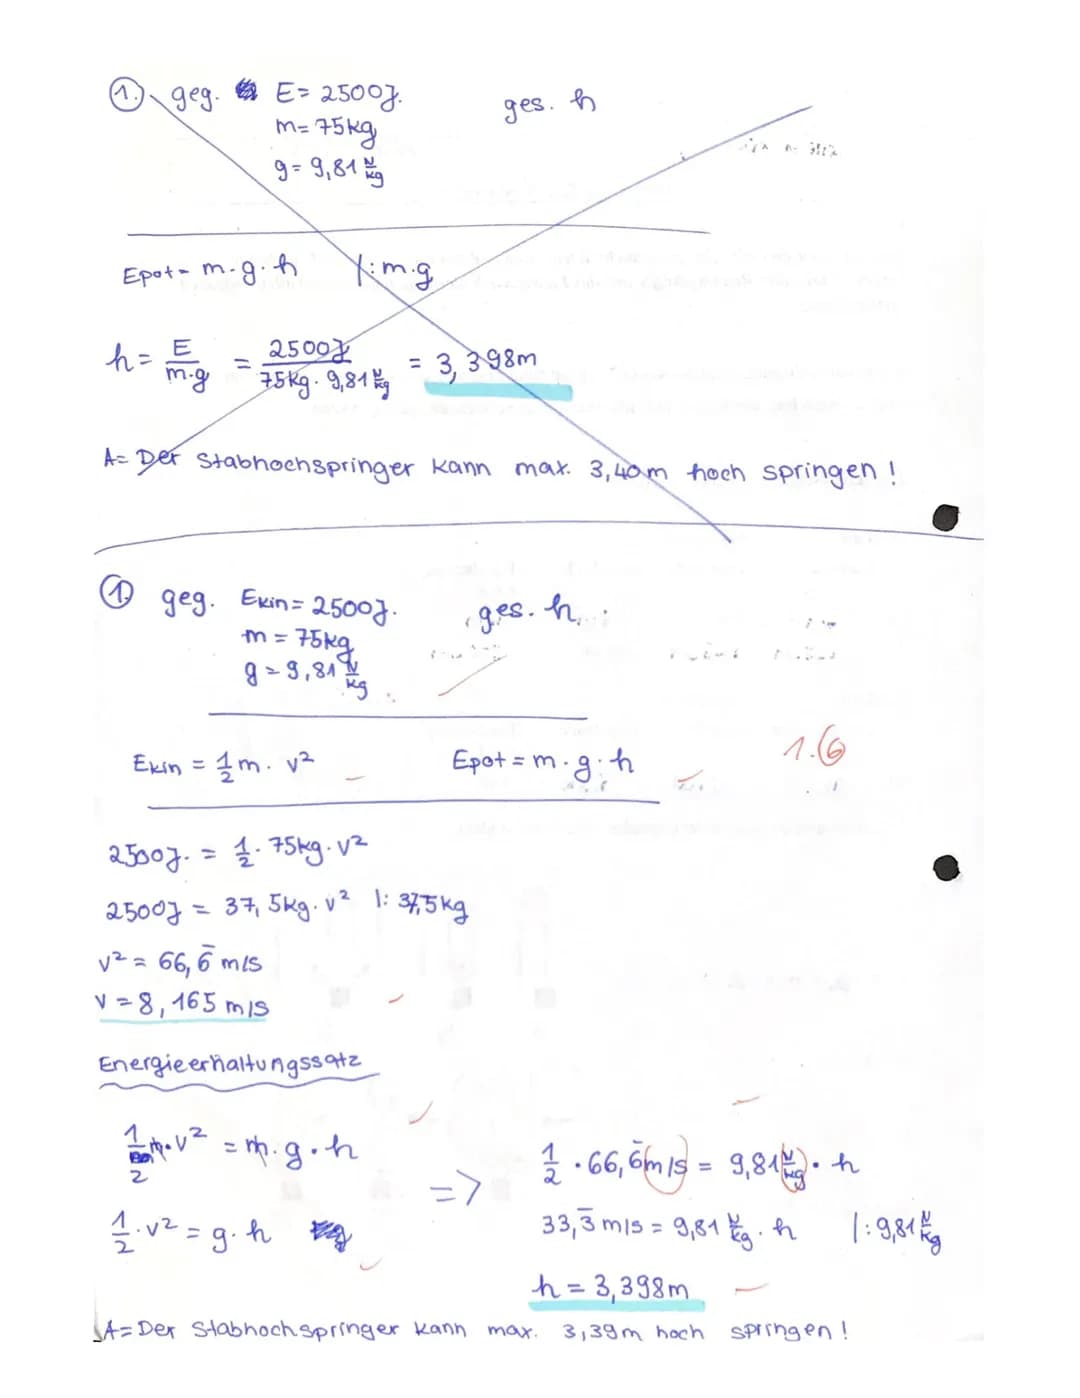 1. geg. E = 2500J. ges. h
m = 75kg
g = 9,81 N/kg
Epot = m·g·h |:m·g
h = E/m·g = 2500J/75kg·9,81 N/kg = 3,398m
A= Der Stabhochspringer kann max. 3,40m hoch springen!
1. geg. Ekin = 2500J. ges. h
m = 75kg
g = 9,81 N/kg
1.6
Ekin = 1/2 m · v² Epot = m·g·h
2500J. = 1/2 · 75kg · v²
2500J = 37,5kg · v² |: 37,5kg
v² = 66,6̅ m/s
v = 8,165 m/s
Energieerhaltungssatz
1/2 m·v² = m·g·h
1/2 · v² = g·h
=> 1/2 · 66,6̅ m/s = 9,81 N/kg · h
33,3̅ m/s = 9,81 N/kg · h |: 9,81 N/kg
h = 3,398m
A= Der Stabhochspringer kann max. 3,39m hoch springen!